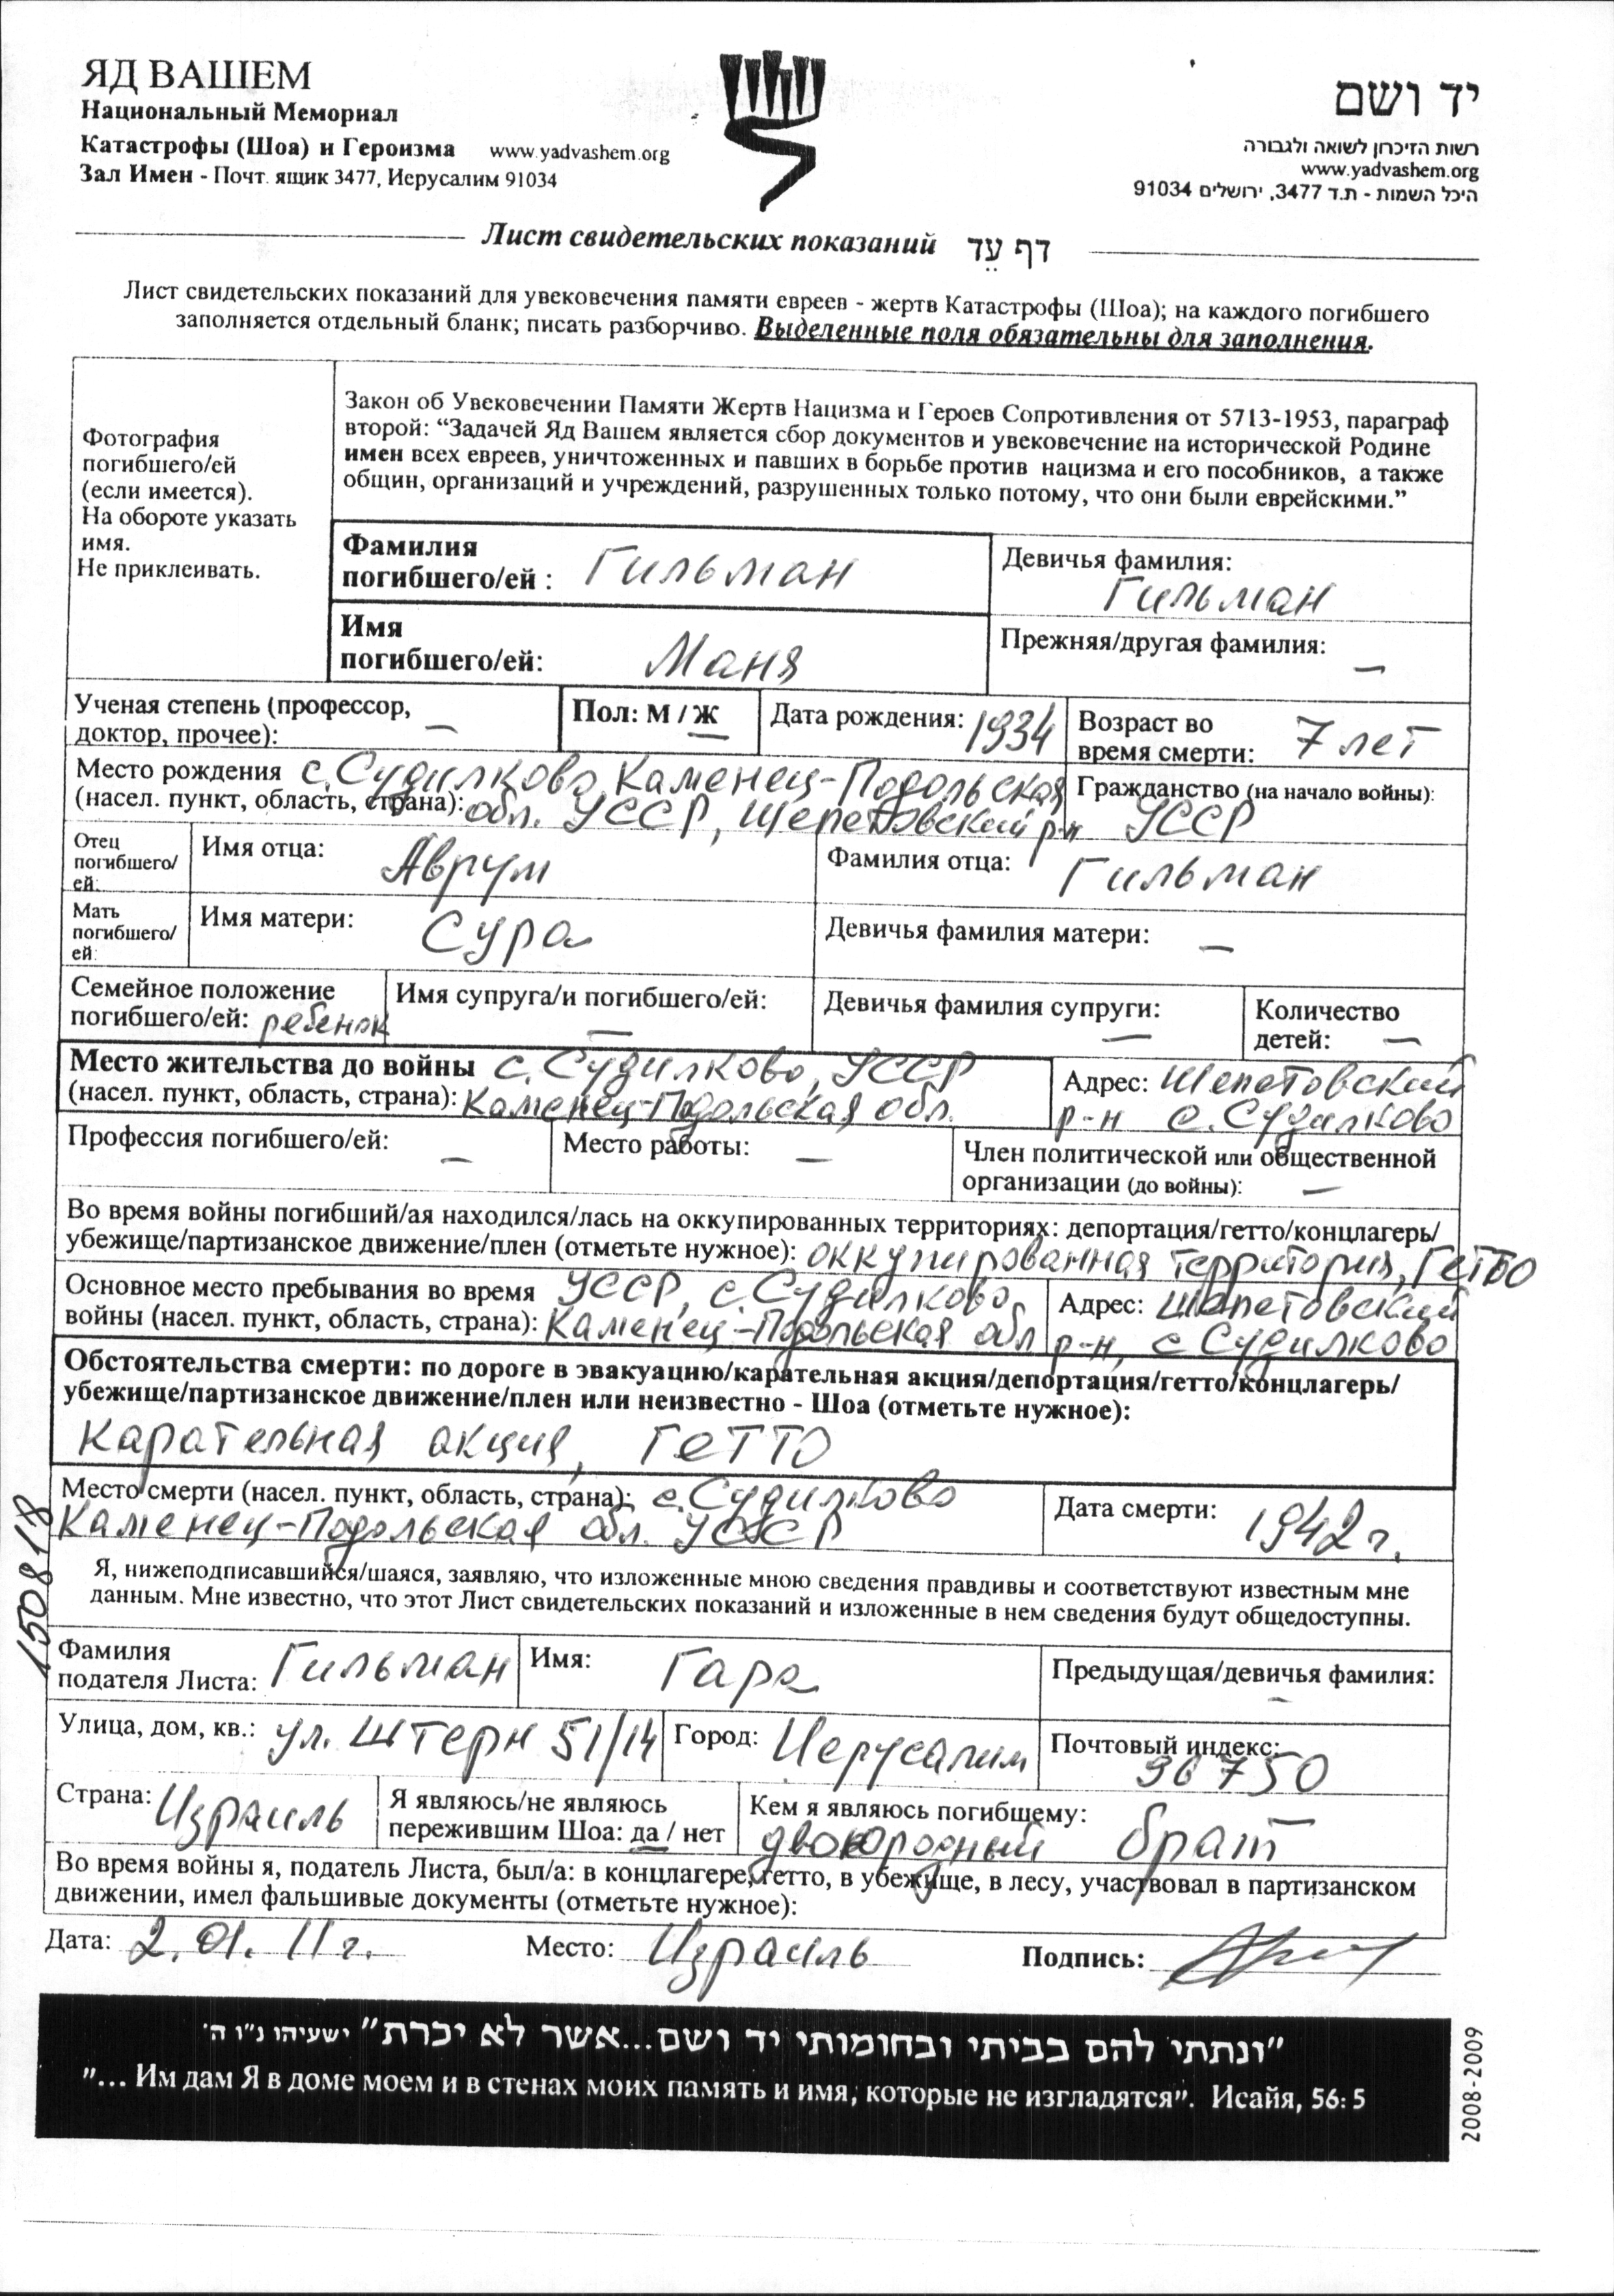 ЯД ВАШЕМ
Национальный Мемориал
Катастрофы (Шоа) и Героизма www.yadvashem.org
Зал Имен - Почт. ящик 3477, Иерусалим 91034
יד ושם
רשות הזיכרון לשואה ולגבורה
www.yadvashem.org
היכל השמות - ת.ד 3477, ירושלים 91034
Лист свидетельских показаний דף עֵד
Лист свидетельских показаний для увековечения памяти евреев - жертв Катастрофы (Шоа); на каждого погибшего
заполняется отдельный бланк; писать разборчиво. Выделенные поля обязательны для заполнения.
Фотография
погибшего/ей
(если имеется).
На обороте указать
имя.
Не приклеивать.
Закон об Увековечении Памяти Жертв Нацизма и Героев Сопротивления от 5713-1953, параграф
второй: “Задачей Яд Вашем является сбор документов и увековечение на исторической Родине
имен всех евреев, уничтоженных и павших в борьбе против нацизма и его пособников, а также
общин, организаций и учреждений, разрушенных только потому, что они были еврейскими.”
Фамилия
погибшего/ей : Гильман
Девичья фамилия:
Гильман
Имя
погибшего/ей: Маня
Прежняя/другая фамилия: —
Ученая степень (профессор,
доктор, прочее): —
Пол: М / Ж
Дата рождения: 1934
Возраст во
время смерти: 7 лет
Место рождения с. Судилково, Каменец-Подольская
(насел. пункт, область, страна): обл. УССР, Шепетовский р-н
Гражданство (на начало войны):
УССР
Отец
погибшего/
ей:
Имя отца: Аврум
Фамилия отца: Гильман
Мать
погибшего/
ей:
Имя матери: Сура
Девичья фамилия матери: —
Семейное положение
погибшего/ей: ребенок
Имя супруга/и погибшего/ей:
—
Девичья фамилия супруги:
—
Количество
детей: —
Место жительства до войны с. Судилково, УССР
(насел. пункт, область, страна): Каменец-Подольская обл.
Адрес: Шепетовский
р-н с. Судилково
Профессия погибшего/ей: —
Место работы: —
Член политической или общественной
организации (до войны): —
Во время войны погибший/ая находился/лась на оккупированных территориях: депортация/гетто/концлагерь/
убежище/партизанское движение/плен (отметьте нужное): оккупированная территория, гетто
Основное место пребывания во время УССР, с. Судилково,
войны (насел. пункт, область, страна): Каменец-Подольская обл
Адрес: Шепетовский
р-н, с Судилково
Обстоятельства смерти: по дороге в эвакуацию/карательная акция/депортация/гетто/концлагерь/
убежище/партизанское движение/плен или неизвестно - Шоа (отметьте нужное):
Карательная акция, гетто
Место смерти (насел. пункт, область, страна): с. Судилково
Каменец-Подольская обл. УССР
Дата смерти: 1942 г.
150818
Я, нижеподписавшийся/шаяся, заявляю, что изложенные мною сведения правдивы и соответствуют известным мне
данным. Мне известно, что этот Лист свидетельских показаний и изложенные в нем сведения будут общедоступны.
Фамилия
податель Листа: Гильман
Имя: Гара
Предыдущая/девичья фамилия:
—
Улица, дом, кв.: ул. Штерн 51/14
Город: Иерусалим
Почтовый индекс:
96750
Страна: Израиль
Я являюсь/не являюсь
пережившим Шоа: да / нет
Кем я являюсь погибшему:
двоюродный брат
Во время войны я, податель Листа, был/а: в концлагере, гетто, в убежище, в лесу, участвовал в партизанском
движении, имел фальшивые документы (отметьте нужное):
Дата: 2.01.11 г. Место: Израиль Подпись:
"ונתתי להם בביתי ובחומותי יד ושם...אשר לא יכרת" ישעיהו נ"ו ה'
"... Им дам Я в доме моем и в стенах моих память и имя, которые не изгладятся". Исайя, 56: 5
2008-2009